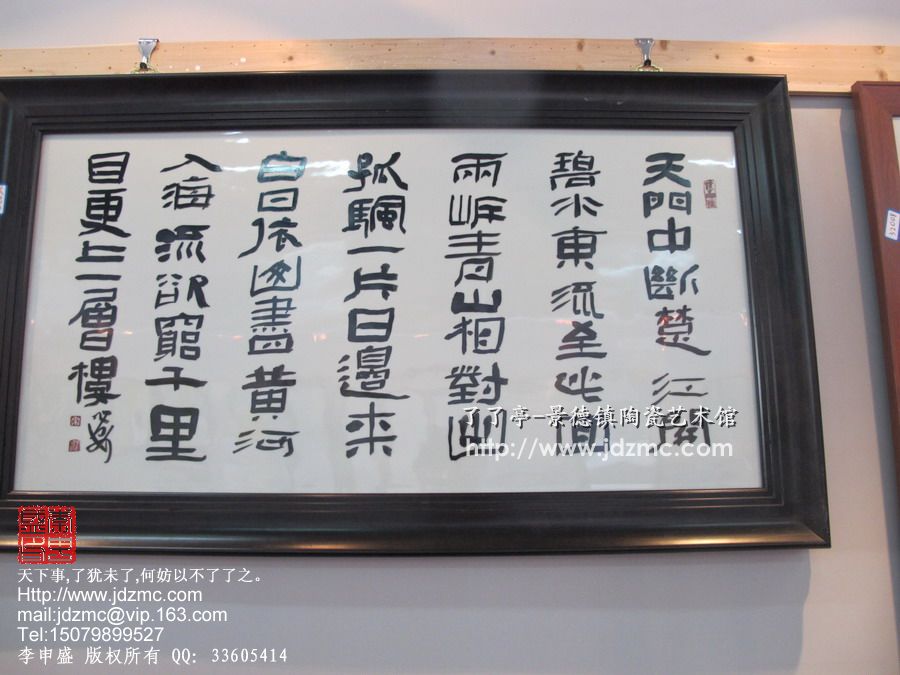 天門中斷楚江開
碧水東流至此
兩岸青山相對出
孤颿一片日邊來
白日依山盡黃河
入海流欲窮千里
目更上一層樓
了了亭-景德镇陶瓷艺术馆
http://www.jdzmc.com
天下事,了犹未了,何妨以不了了之。
Http://www.jdzmc.com
mail:jdzmc@vip.163.com
Tel:15079899527
李申盛 版权所有 QQ: 33605414